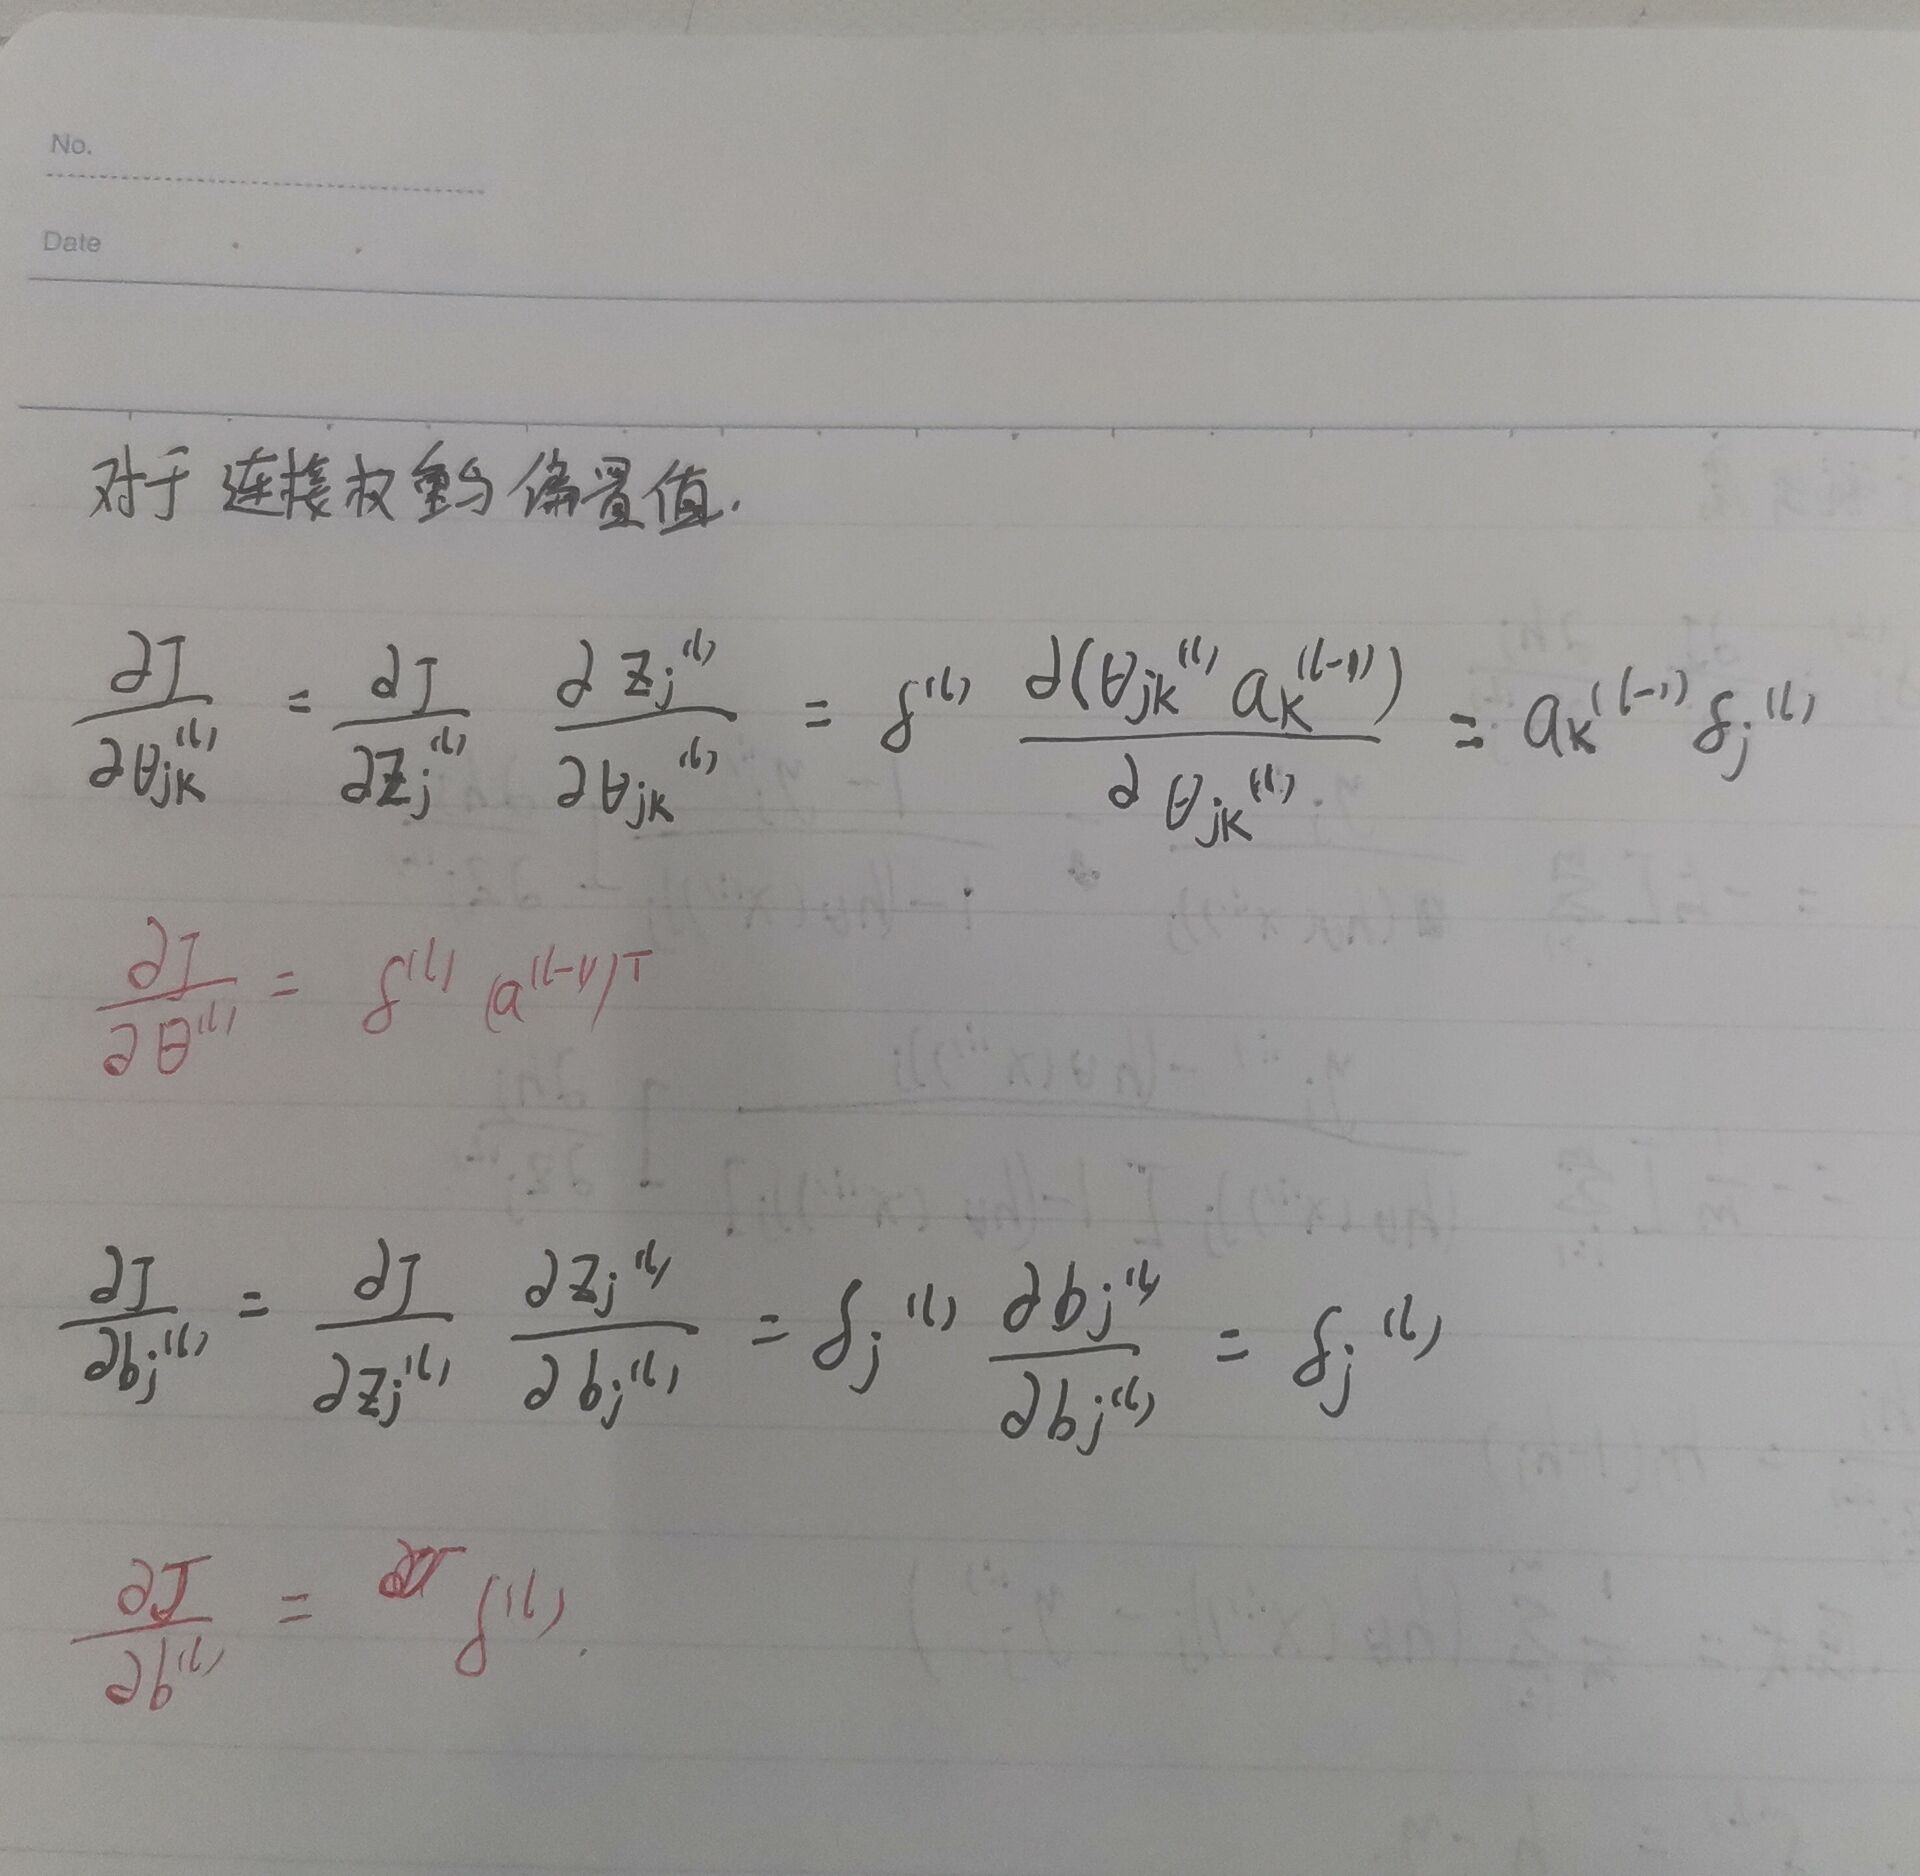 No.
Date
对于连接权重与偏置值.
∂J/∂θjk^(l) = ∂J/∂zj^(l) ∂zj^(l)/∂θjk^(l) = δ^(l) ∂(θjk^(l) ak^(l-1))/∂θjk^(l) = ak^(l-1) δj^(l)
∂J/∂θ^(l) = δ^(l) (a^(l-1))^T
∂J/∂bj^(l) = ∂J/∂zj^(l) ∂zj^(l)/∂bj^(l) = δj^(l) ∂bj^(l)/∂bj^(l) = δj^(l)
∂J/∂b^(l) = δ^(l).